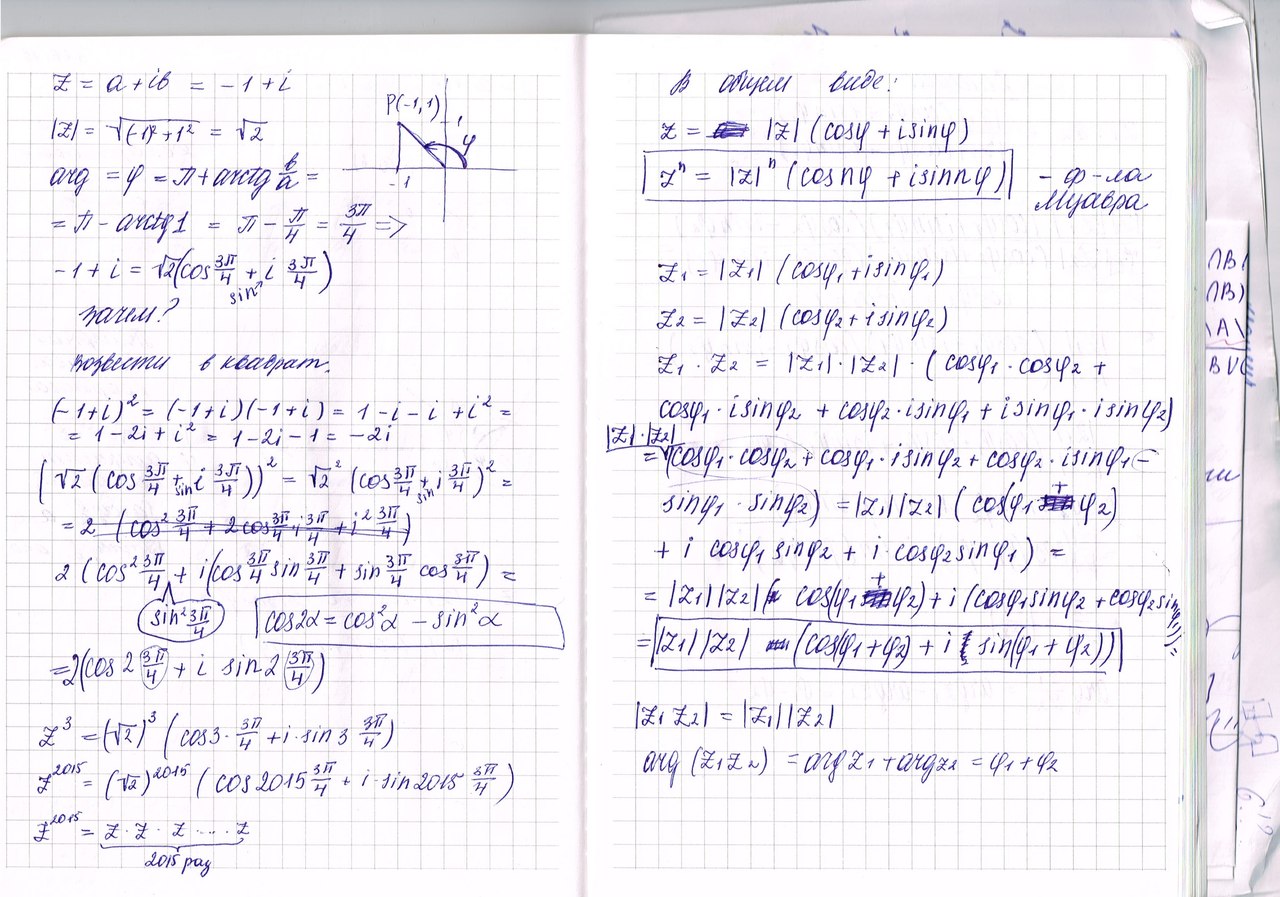 z = a + ib = -1 + i
|z| = √((-1)² + 1²) = √2
P(-1, 1)
1
φ
-1
arg = φ = π + arctg b/a =
= π - arctg 1 = π - π/4 = 3π/4 =>
-1 + i = √2(cos 3π/4 + i sin 3π/4)
зачем?
возвести в квадрат.
(-1+i)² = (-1+i)(-1+i) = 1 - i - i + i² =
= 1 - 2i + i² = 1 - 2i - 1 = -2i
(√2 (cos 3π/4 + sin i 3π/4))² = √2² (cos 3π/4 + sin i 3π/4)² =
= 2 (cos² 3π/4 + 2cos 3π/4 i 3π/4 + i² 3π/4)
2 (cos² 3π/4 + i(cos 3π/4 sin 3π/4 + sin 3π/4 cos 3π/4) =
sin² 3π/4
cos2α = cos²α - sin²α
= 2(cos 2 3π/4 + i sin 2 3π/4)
z³ = (√2)³ (cos 3 · 3π/4 + i · sin 3 3π/4)
z²⁰¹⁵ = (√2)²⁰¹⁵ (cos 2015 3π/4 + i · sin 2015 3π/4)
z²⁰¹⁵ = z · z · z · ... · z
2015 раз
В общем виде:
z = |z| (cosφ + i sinφ)
zⁿ = |z|ⁿ (cos nφ + i sin nφ) - ф-ла
Муавра
z₁ = |z₁| (cosφ₁ + i sinφ₁)
z₂ = |z₂| (cosφ₂ + i sinφ₂)
z₁ · z₂ = |z₁| · |z₂| · (cosφ₁ · cosφ₂ +
cosφ₁ · i sinφ₂ + cosφ₂ · i sinφ₁ + i sinφ₁ · i sinφ₂)
|z₁| · |z₂|
= (cosφ₁ · cosφ₂ + cosφ₁ · i sinφ₂ + cosφ₂ · i sinφ₁ -
sinφ₁ · sinφ₂) = |z₁||z₂| (cos(φ₁ + φ₂)
+ i cosφ₁ sinφ₂ + i · cosφ₂ sinφ₁) =
= |z₁||z₂| (cos(φ₁ + φ₂) + i (cosφ₁ sinφ₂ + cosφ₂ sinφ₁)) =
= |z₁||z₂| (cos(φ₁ + φ₂) + i sin(φ₁ + φ₂))
|z₁ z₂| = |z₁||z₂|
arg (z₁z₂) = arg z₁ + arg z₂ = φ₁ + φ₂